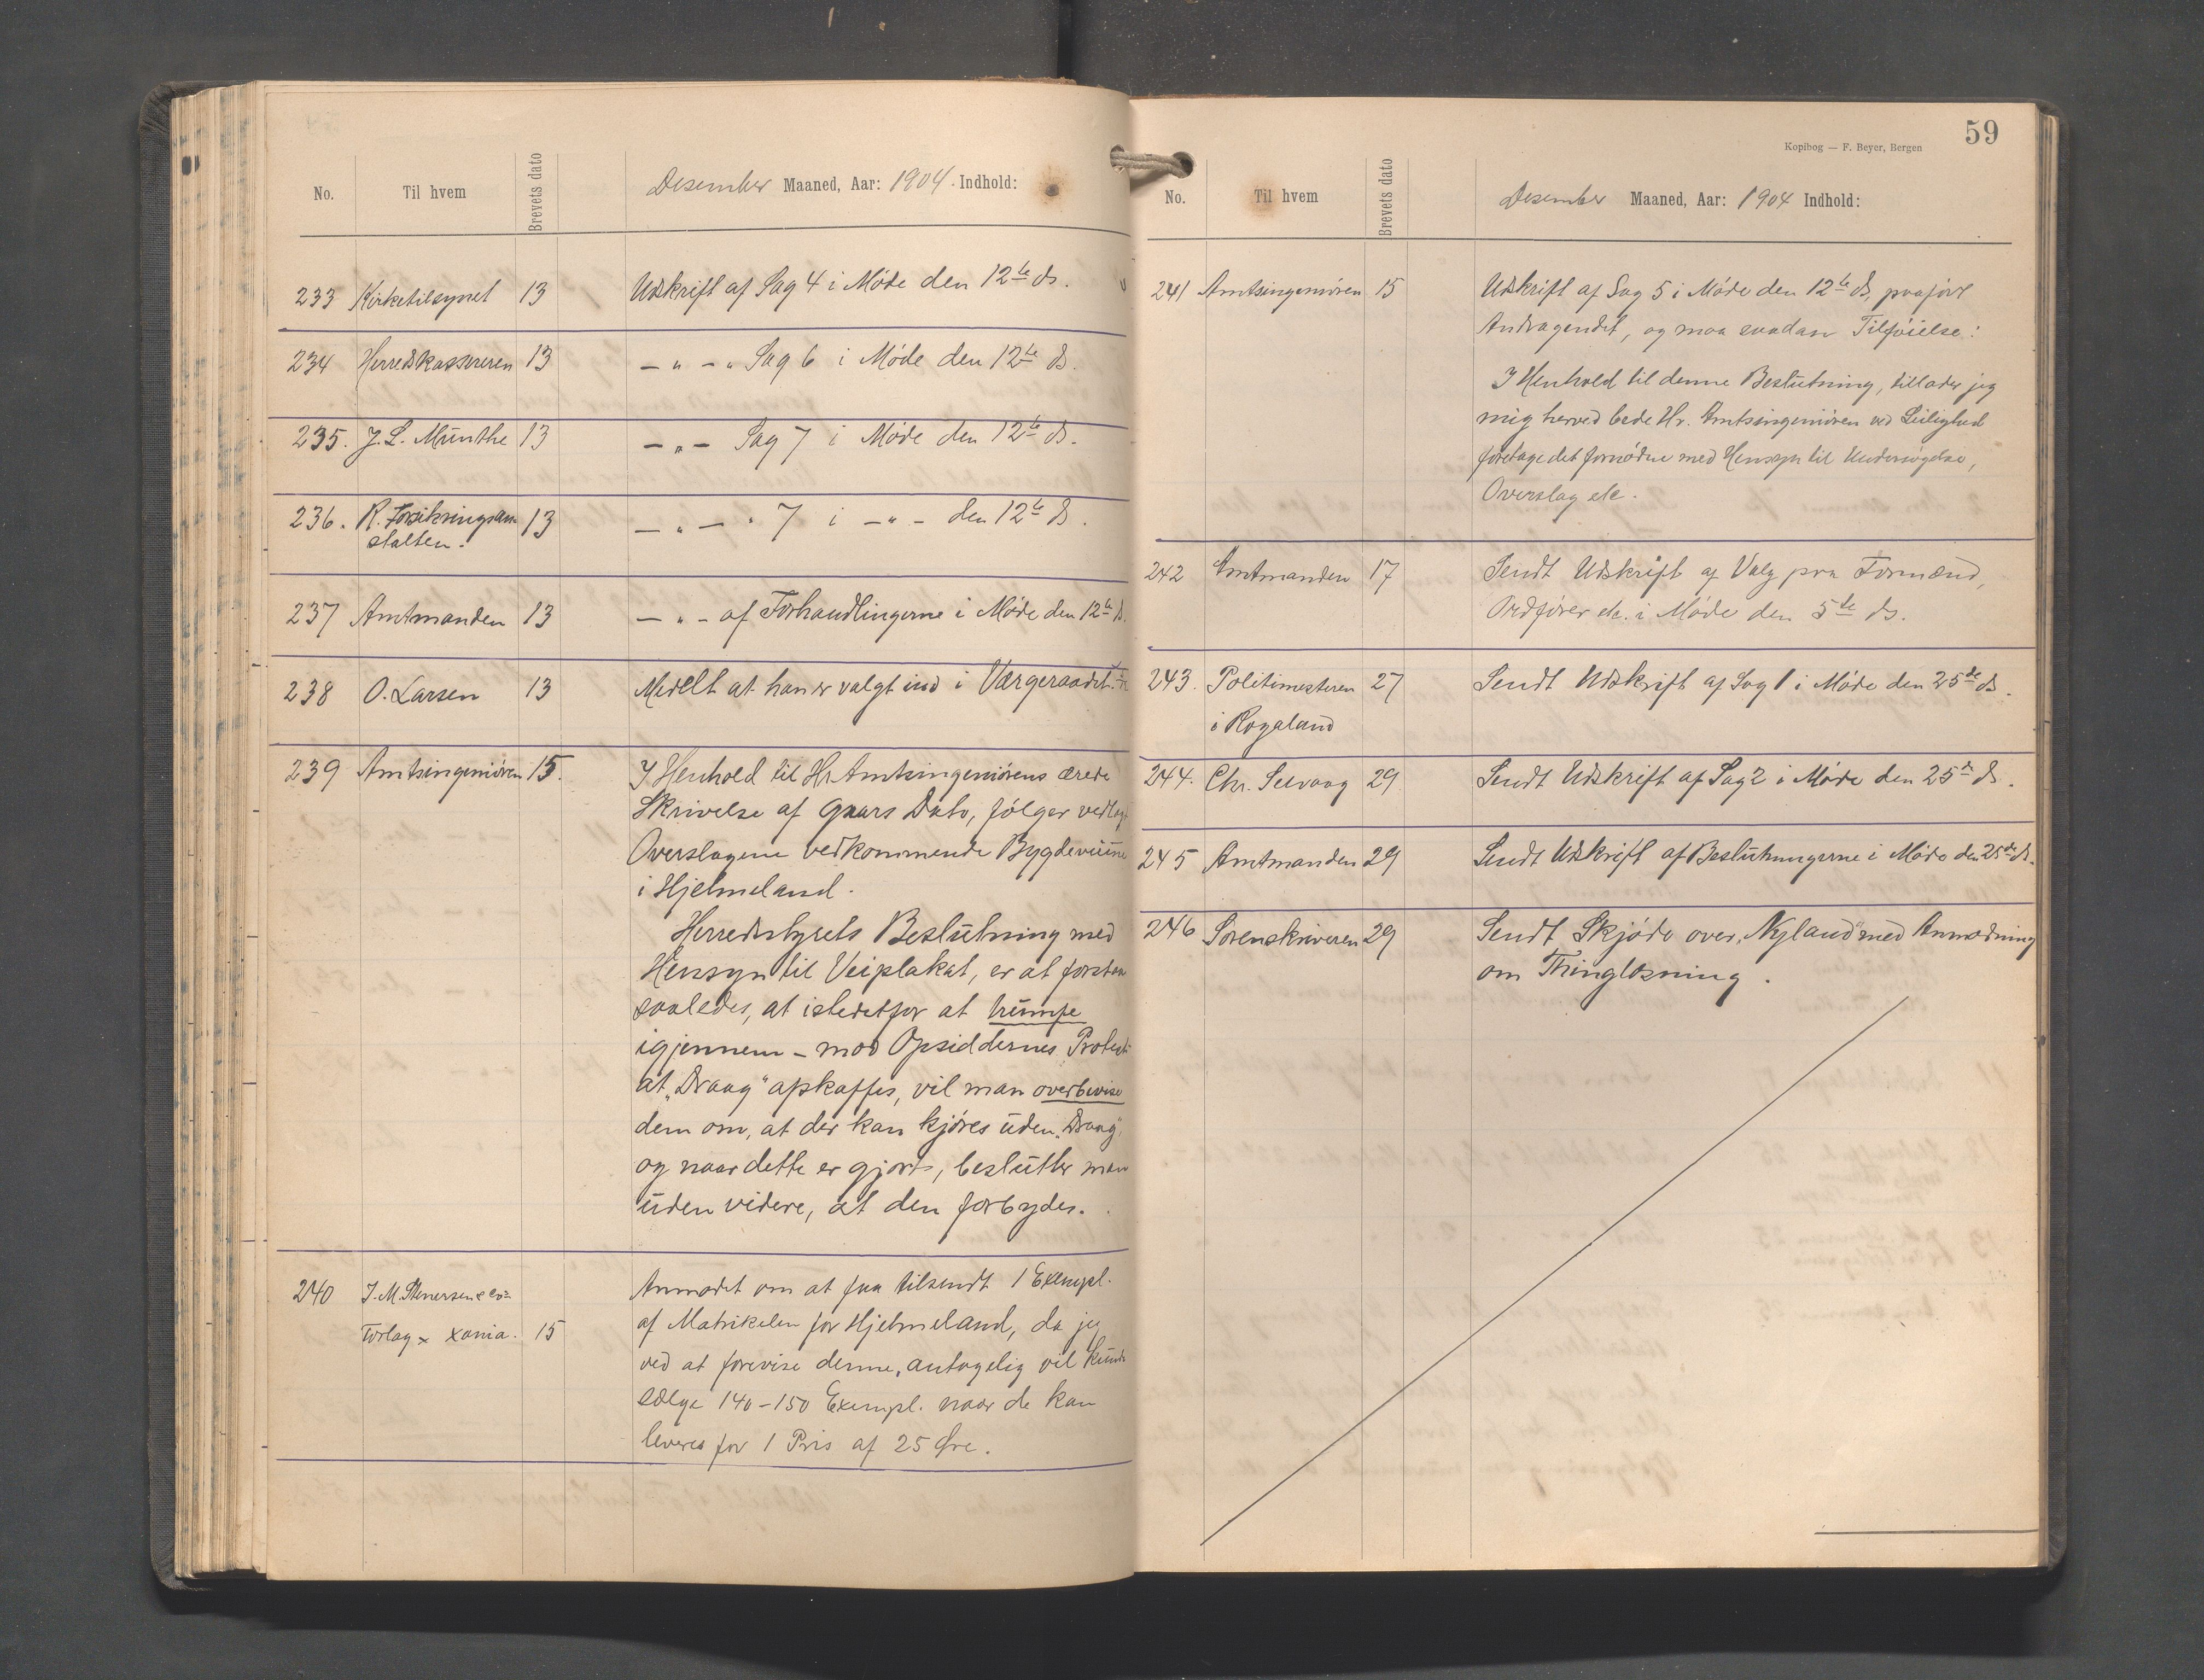 No. Til hvem Brevets dato Desember Maaned, Aar: 1904. Indhold:
233 Kirketilsynet 13 Udskrift af Sag 4 i Møde den 12te ds.
234 Herredskassereren 13 — " — " Sag 6 i Møde den 12te ds.
235. J. L. Munthe 13 — " — Sag 7 i Møde den 12te ds.
236. R. Forsikringsan 13 — " — " 7 i — " — den 12te ds.
stalten.
237 Amtmanden 13 — " — af Forhandlingerne i Møde den 12te ds.
238 O. Larsen 13 Medelt at han er valgt ind i Værgeraadet.
239 Amtsingeniøren 15. I Henhold til Hr Amtsingeniørens ærede
Skrivelse af Dato, følger vedlagt
Overslagene vedkommende Bygdeveiene
i Hjelmeland.
Herredstyrets Beslutning med
Hensyn til Veiplakat, er at forstaa
saaledes, at istedetfor at trumfe
igjennem – mod Opsiddernes Protest
at „Draag" afskaffes, vil man overbevise
dem om, at der kan kjøres uden „Draag",
og naar dette er gjort, beslutter man
uden videre, at den forbydes.
240 J. M. Stenersen & Co's
Forlag x Xania. 15
Anmodet om at faa tilsendt 1 Exempl.
af Matrikelen for Hjelmeland, da jeg
ved at forevise denne, antagelig vil kunde
sælge 140–150 Exempl. naar de kan
leveres for 1 Pris af 25 Øre.
59
Kopibog — F. Beyer, Bergen
No. Til hvem Brevets dato Desember Maaned, Aar: 1904 Indhold:
241 Amtsingeniøren 15 Udskrift af Sag 5 i Møde den 12te ds, paaført
Andragendet, og maa saadan Tilføielse:
I Henhold til denne Beslutning, tillader jeg
mig herved bede Hr. Amtsingeniøren ved Leilighed
foretage det fornødne med Hensyn til Undersøgelse,
Overslag etc.
242 Amtmanden 17 Sendt Udskrift af Valg paa Formænd,
Ordfører etc. i Møde den 5te ds.
243. Politimesteren 27 Sendt Udskrift af Sag 1 i Møde den 25de ds.
i Rogaland
244. Chr. Selvaag 29 Sendt Udskrift af Sag 2 i Møde den 25de ds.
245 Amtmanden 29 Sendt Udskrift af Beslutningerne i Møde den 25de ds.
246 Sorenskriveren 29 Sendt Skjøde over „Nyland" med Anmodning
om Thinglæsning.